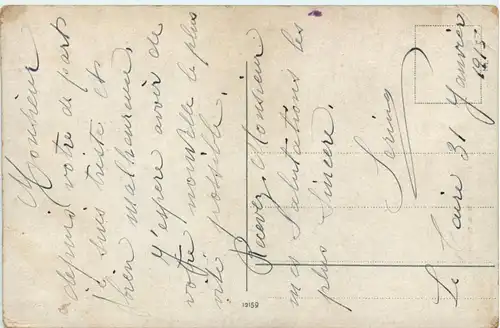 Monsieur
depuis votre départ
je suis triste et
bien malheureux.
J'espere avoir de
votre nouvelle le plus
vite possible.
Recevez Monsieur
mes Salutations les
plus Sincere.
Le Caire 31 Janvier
1915
13159